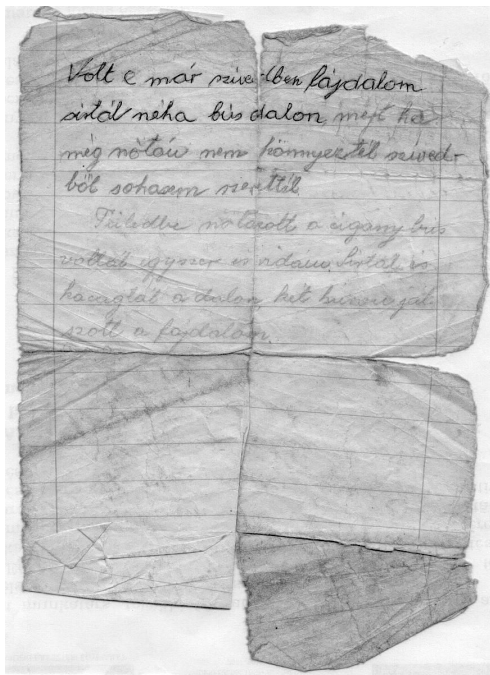 Volt e már szivedben fájdalom
sirtál néha bús dalon mert ha
még nótán nem könnyeztél szived-
ből sohasem szerettél.
Füledbe nótázott a cigány bús
voltál egyszer és vidám. Sirtál és
kacagtál a dalon két húron ját-
szott a fájdalom.